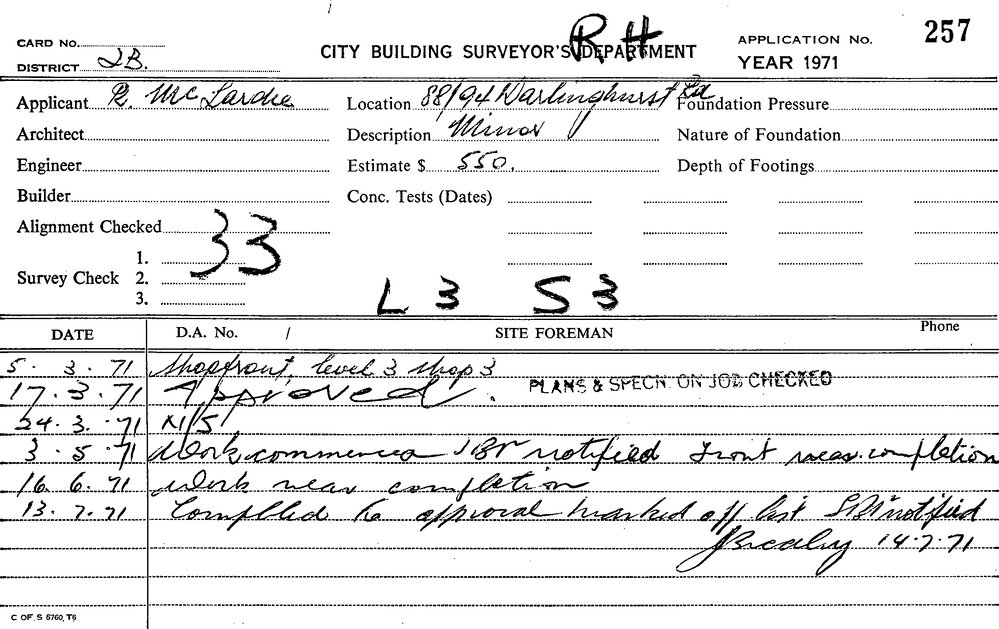 R H
257
CARD No.
CITY BUILDING SURVEYOR'S DEPARTMENT
APPLICATION No.
DISTRICT 2B.
YEAR 1971
Applicant R. McLardie Location 88/94 Darlinghurst Rd Foundation Pressure
Architect Description Minor Nature of Foundation
Engineer Estimate $ 550. Depth of Footings
Builder Conc. Tests (Dates)
Alignment Checked 33
1.
Survey Check 2.
3.
L 3 S 3
DATE D.A. No. / SITE FOREMAN Phone
5. 3. 71 Shopfront, level 3 shop 3
17. 3. 71 Approved. PLANS & SPECN. ON JOB CHECKED
24. 3. 71 N/S
3. 5. 71 Work commenced notified front near completion
16. 6. 71 Work near completion
13. 7. 71 Completed to approval marked off list notified
14.7.71
C OF S 6760, T6